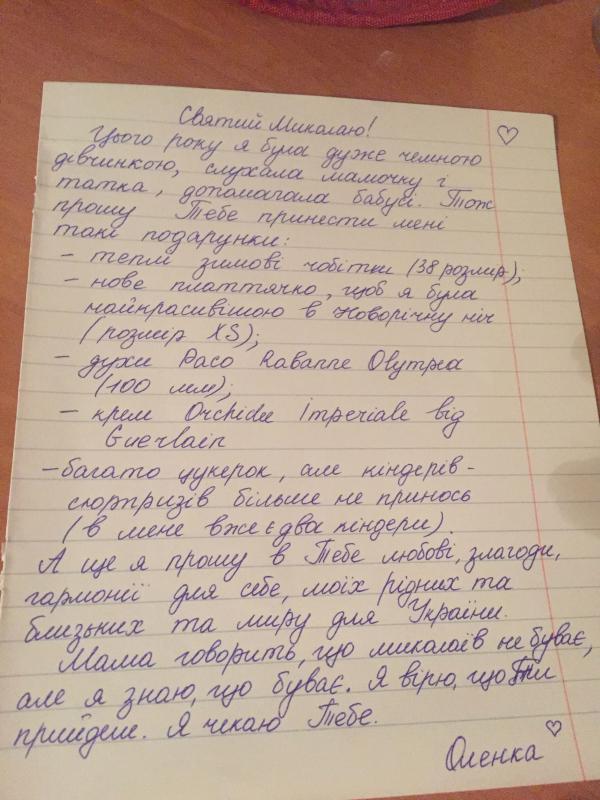 Святий Миколаю!
Цього року я була дуже чемною
дівчинкою, слухала мамочку і
татка, допомагала бабусі. Тож
прошу Тебе принести мені
такі подарунки:
- теплі зимові чобітки (38 розмір);
- нове платтячко, щоб я була
найкрасивішою в Новорічну ніч
(розмір XS);
- духи Paco Rabanne Olympea
(100 мл);
- крем Orchidee Imperiale від
Guerlain
- багато цукерок, але кіндерів-
сюрпризів більше не принось
(в мене вже є два кіндери).
А ще я прошу в Тебе любові, злагоди,
гармонії для себе, моїх рідних та
близьких та миру для України.
Мама говорить, що миколаїв не буває,
але я знаю, що буває. Я вірю, що Ти
прийдеш. Я чекаю Тебе.
Оленка